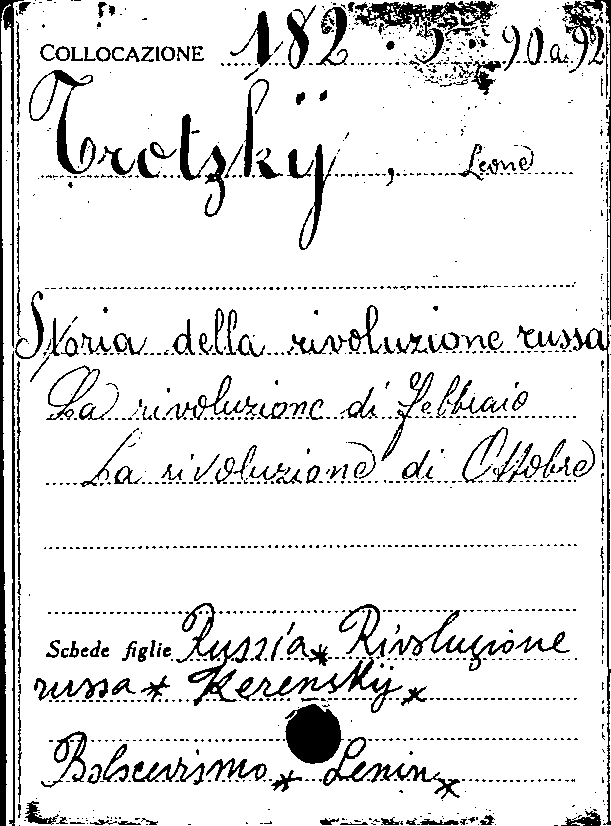 COLLOCAZIONE 182 . 5 .. 90 a 92
Trotzkÿ, Leone
Storia della rivoluzione russa
La rivoluzione di febbraio
La rivoluzione di Ottobre
Schede figlie Russia * Rivoluzione
russa * Kerenskÿ *
Bolscevismo * Lenin *